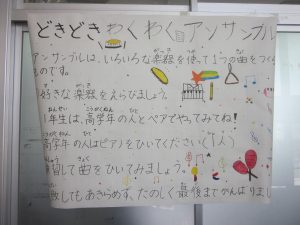 どきどきわくわくアンサンブル
アンサンブルは、いろいろな楽器を使って1つの曲をつく
ものです。
好きな楽器をえらびましょう。
1年生は、高学年の人とペアでやってみてね!
高学年の人はピアノをひいてください(1人)
習して曲をひいてみましょう。
敗してもあきらめず、たのしく最後までがんばりまし